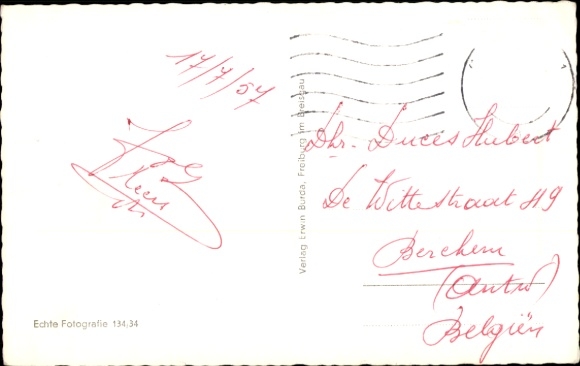 17/7/57
Dhr. Duces Hubert
De Wittestraat 119
Berchem
(Antw)
Belgiën
Verlag Erwin Burda, Freiburg im Breisgau
Echte Fotografie 134/34